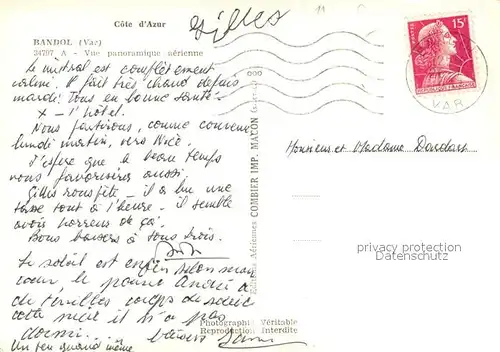 Côte d'Azur
Gilles
BANDOL (Var)
34797 A - Vue panoramique aérienne
15F
POSTES
REPUBLIQUE FRANÇAISE
VAR
Le mistral est complètement
calmé. Il fait très chaud depuis
mardi. Tous en bonne santé
x - l'hôtel.
Nous partirons, comme convenu
lundi matin, vers Nice.
J'espère que le beau temps
vous favorisera aussi.
Gilles vous fête - il a bu une
tasse tout à l'heure - il semble
avoir horreur de ça.
Bons baisers à tous trois.
Le soleil est enfin selon mon
cœur, le pauvre André a
de terribles coups de soleil
cette nuit il n'a pas
dormi.
Un peu quand même
Editions Aériennes COMBIER IMP. MACON
Monsieur et Madame
Photographie Véritable
Reproduction Interdite
privacy protection watermark
datenschutz wasserzeichen